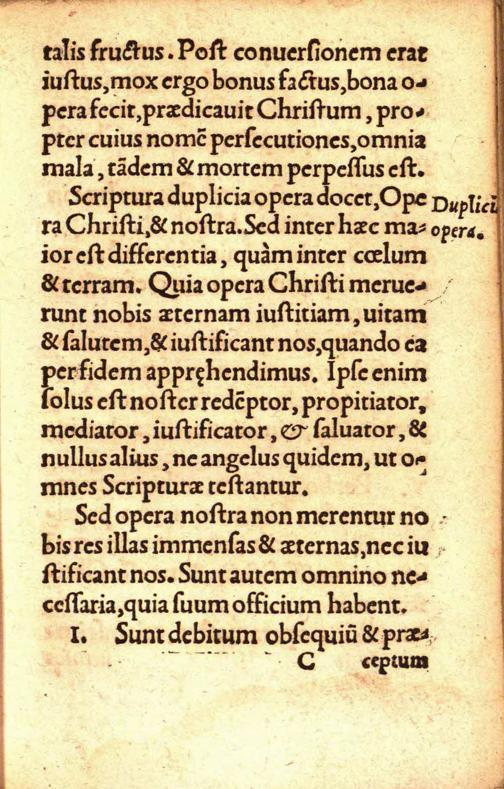 talis fructus. Post conuersionem erat
iustus, mox ergo bonus factus, bona o-
pera fecit, prædicauit Christum, pro-
pter cuius nomẽ persecutiones, omnia
mala, tãdem & mortem perpessus est.
Scriptura duplicia opera docet, Ope
Duplicia
ra Christi, & nostra. Sed inter hæc ma-
opera.
ior est differentia, quàm inter cœlum
& terram. Quia opera Christi merue-
runt nobis æternam iustitiam, uitam
& salutem, & iustificant nos, quando ea
per fidem appręhendimus. Ipse enim
solus est noster redẽptor, propitiator,
mediator, iustificator, & saluator, &
nullus alius, ne angelus quidem, ut o-
mnes Scripturæ testantur.
Sed opera nostra non merentur no
bis res illas immensas & æternas, nec iu
stificant nos. Sunt autem omnino ne-
cessaria, quia suum officium habent.
1. Sunt debitum obsequiũ & præ-
C ceptum